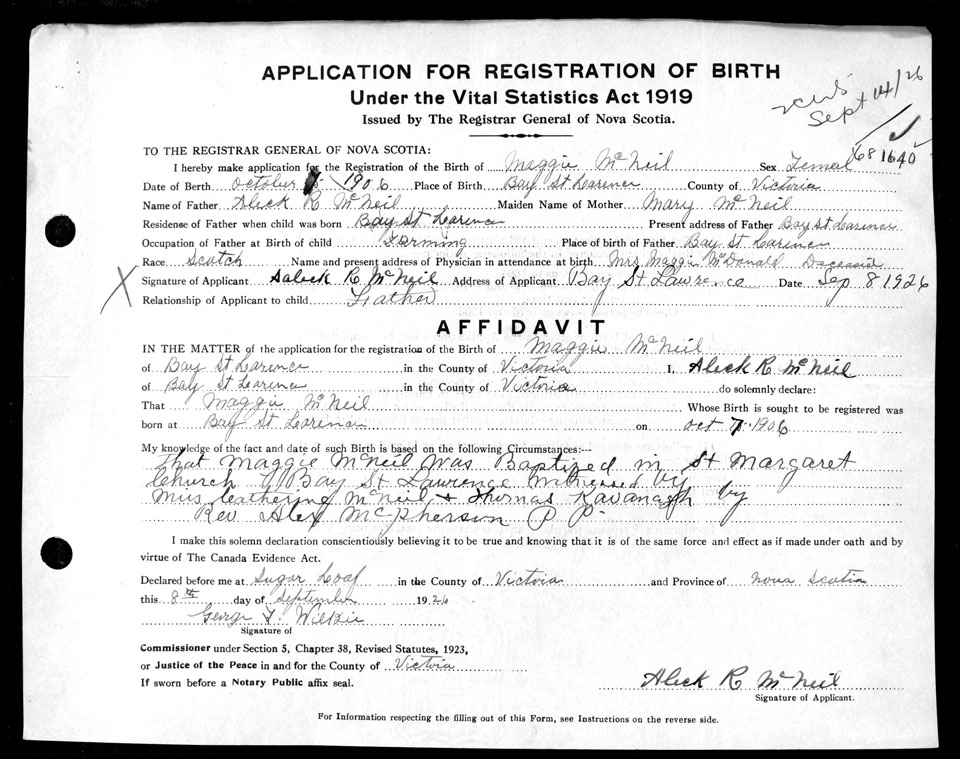 APPLICATION FOR REGISTRATION OF BIRTH
Under the Vital Statistics Act 1919
Issued by The Registrar General of Nova Scotia.
Sept 14/26
681640
TO THE REGISTRAR GENERAL OF NOVA SCOTIA:
I hereby make application for the Registration of the Birth of Maggie McNeil Sex Femal
Date of Berth October 1906 Place of Birth Bay St Larence County of Victoria
Name of Father Aleck R McNeil Maiden Name of Mother Mary McNeil
Residense of Father when child was born Bay St Larence Present address of Father Bay St Larence
Occupation of Father at Birth of child Farming Place of birth of Father Bay St Larence
Race Scotch Name and present address of Physician in attendance at birth Mrs Maggie McDonald Deceasid
X Signature of Applicant Aleck R McNeil Address of Applicant Bay St Lawrence Date Sep 8 1926
Relationship of Applicant to child Father
AFFIDAVIT
IN THE MATTER of the application for the registration of the Birth of Maggie McNeil
of Bay St Larence in the County of Victoria I, Aleck R. McNeil
of Bay St Larence in the County of Victoria do solemnly declare:
That Maggie McNeil Whose Birth is sought to be registered was
born at Bay St Larence on Oct 7 1906
My knowledge of the fact and date of such Birth is based on the following Circumstances:—
That Maggie McNeil Was Baptized in St Margaret
Church Bay St Lawrence Witnessed by
Miss Catherine McNeil & Thomas Kavanagh by
Rev Alex McPherson P P.
I make this solemn declaration conscientiously believing it to be true and knowing that it is of the same force and effect as if made under oath and by
virtue of The Canada Evidence Act.
Declared before me at Sugar Loaf in the County of Victoria and Province of Nova Scotia
this 8th day of September 1926
George F. Wilkie
Signature of
Commissioner under Section 5, Chapter 38, Revised Statutes, 1923,
or Justice of the Peace in and for the County of Victoria
If sworn before a Notary Public affix seal.
Aleck R McNeil
Signature of Applicant.
For Information respecting the filling out of this Form, see Instructions on the reverse side.